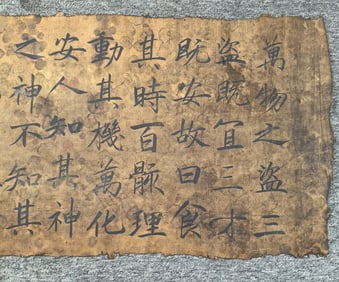 萬物之盗三
盗既宜三才
既安故曰食
其時百骸理
動其機萬化
安人知其神
之神不知其